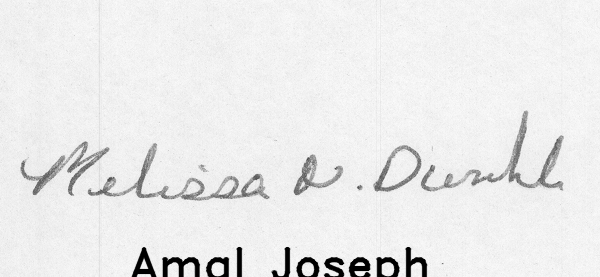 Melissa D. Dunkle
Amal Joseph